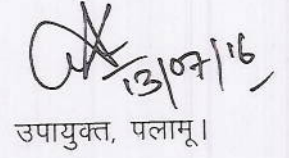 13/07/16
उपायुक्त, पलामू।